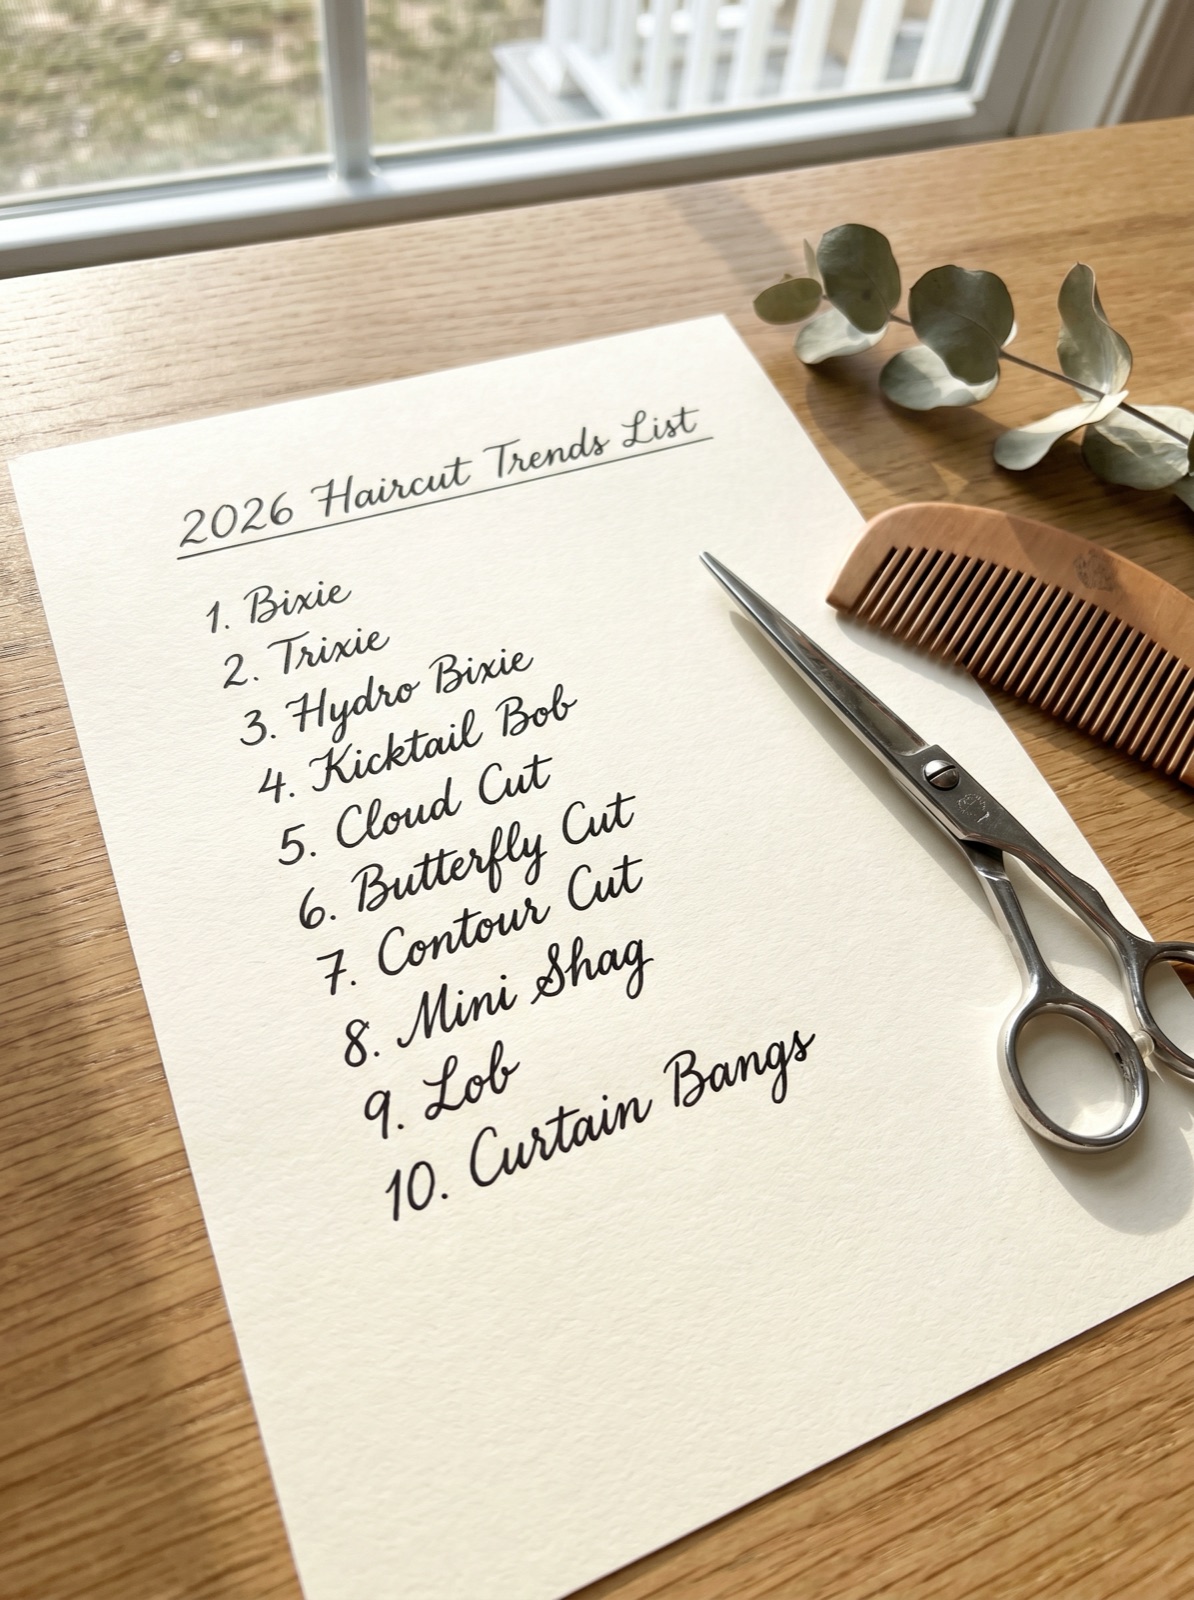 2026 Haircut Trends List
1. Bixie
2. Trixie
3. Hydro Bixie
4. Kicktail Bob
5. Cloud Cut
6. Butterfly Cut
7. Contour Cut
8. Mini Shag
9. Lob
10. Curtain Bangs